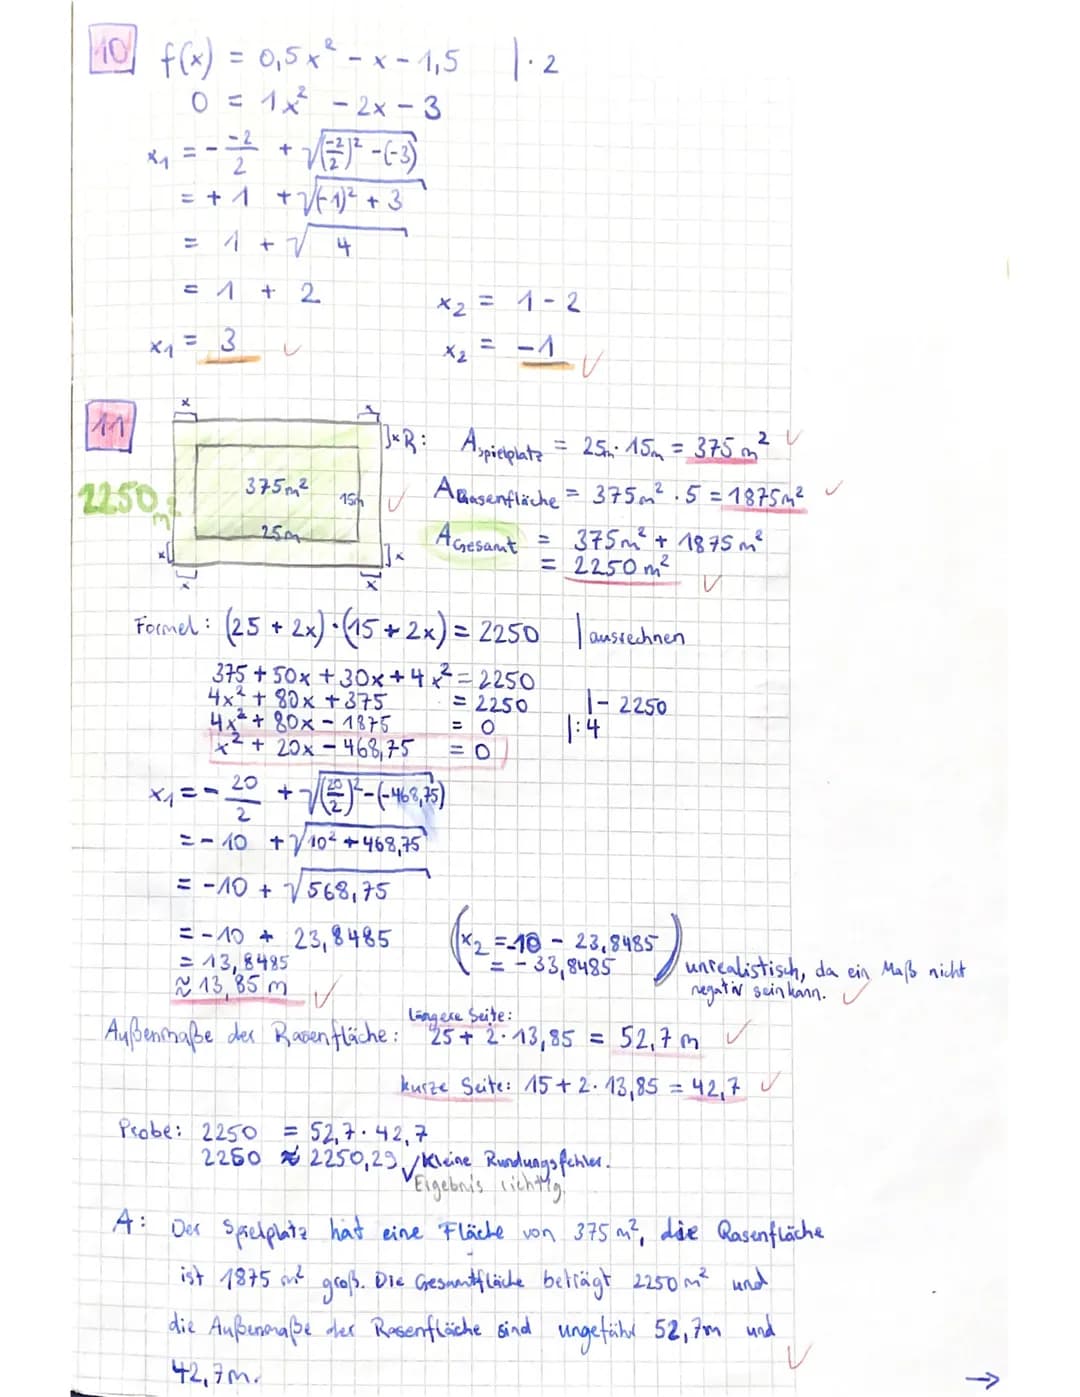 10 f(x) = 0,5x² - x - 1,5 | · 2
0 = 1x² - 2x - 3
x₁ = - -2/2 + √((-2/2)² - (-3))
= + 1 + √((-1)² + 3)
= 1 + √4
= 1 + 2 x₂ = 1 - 2
x₁ = 3 ✓ x₂ = -1 ✓
11
x x
]x R: A Spielplatz = 25m · 15m = 375 m² ✓
2250 m² 375m² 15m ✓ A Rasenfläche = 375m² · 5 = 1875m² ✓
25m A Gesamt = 375m² + 1875 m²
x[ ]x = 2250 m² ✓
x x
Formel: (25 + 2x) · (15 + 2x) = 2250 | ausrechnen
375 + 50x + 30x + 4x² = 2250
4x² + 80x + 375 = 2250 | - 2250
4x² + 80x - 1875 = 0 | : 4
x² + 20x - 468,75 = 0
x₁ = - 20/2 + √((20/2)² - (-468,75))
= - 10 + √(10² + 468,75)
= -10 + √568,75
= - 10 + 23,8485 (x₂ = -10 - 23,8485
= 13,8485 = - 33,8485) unrealistisch, da ein Maß nicht
≈ 13,85 m ✓ negativ sein kann. ✓
Längere Seite:
Außenmaße der Rasenfläche: 25 + 2 · 13,85 = 52,7 m ✓
kurze Seite: 15 + 2 · 13,85 = 42,7 ✓
Probe: 2250 = 52,7 · 42,7
2250 ≈ 2250,29 ✓ Kleine Rundungsfehler.
Ergebnis richtig.
A: Der Spielplatz hat eine Fläche von 375 m², die Rasenfläche
ist 1875 m² groß. Die Gesamtfläche beträgt 2250 m² und
die Außenmaße der Rasenfläche sind ungefähr 52,7m und
42,7m. ✓
→